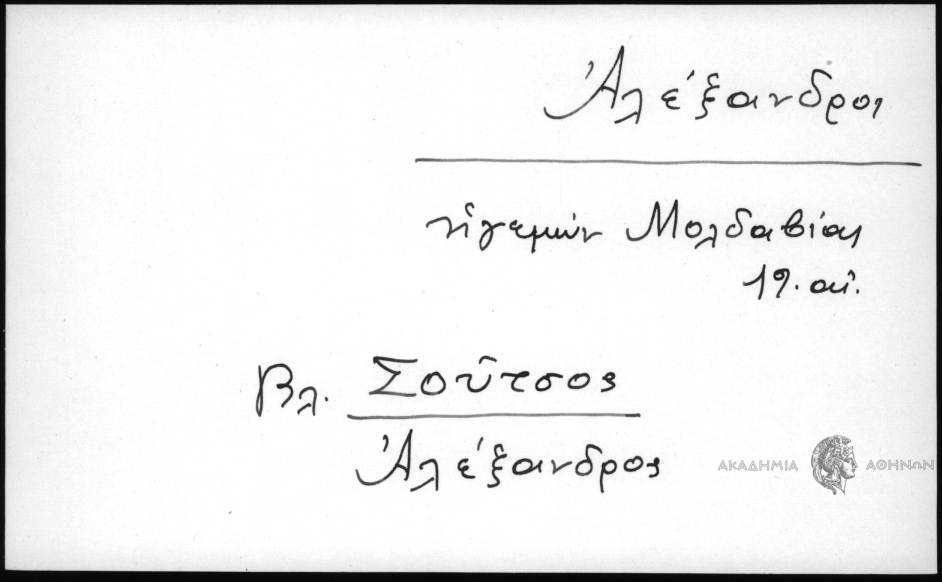 Ἀλέξανδρος
ἡγεμών Μολδαβίας
19. αἰ.
Βλ. Σοῦτσος
Ἀλέξανδρος
ΑΚΑΔΗΜΙΑ ΑΘΗΝΩΝ